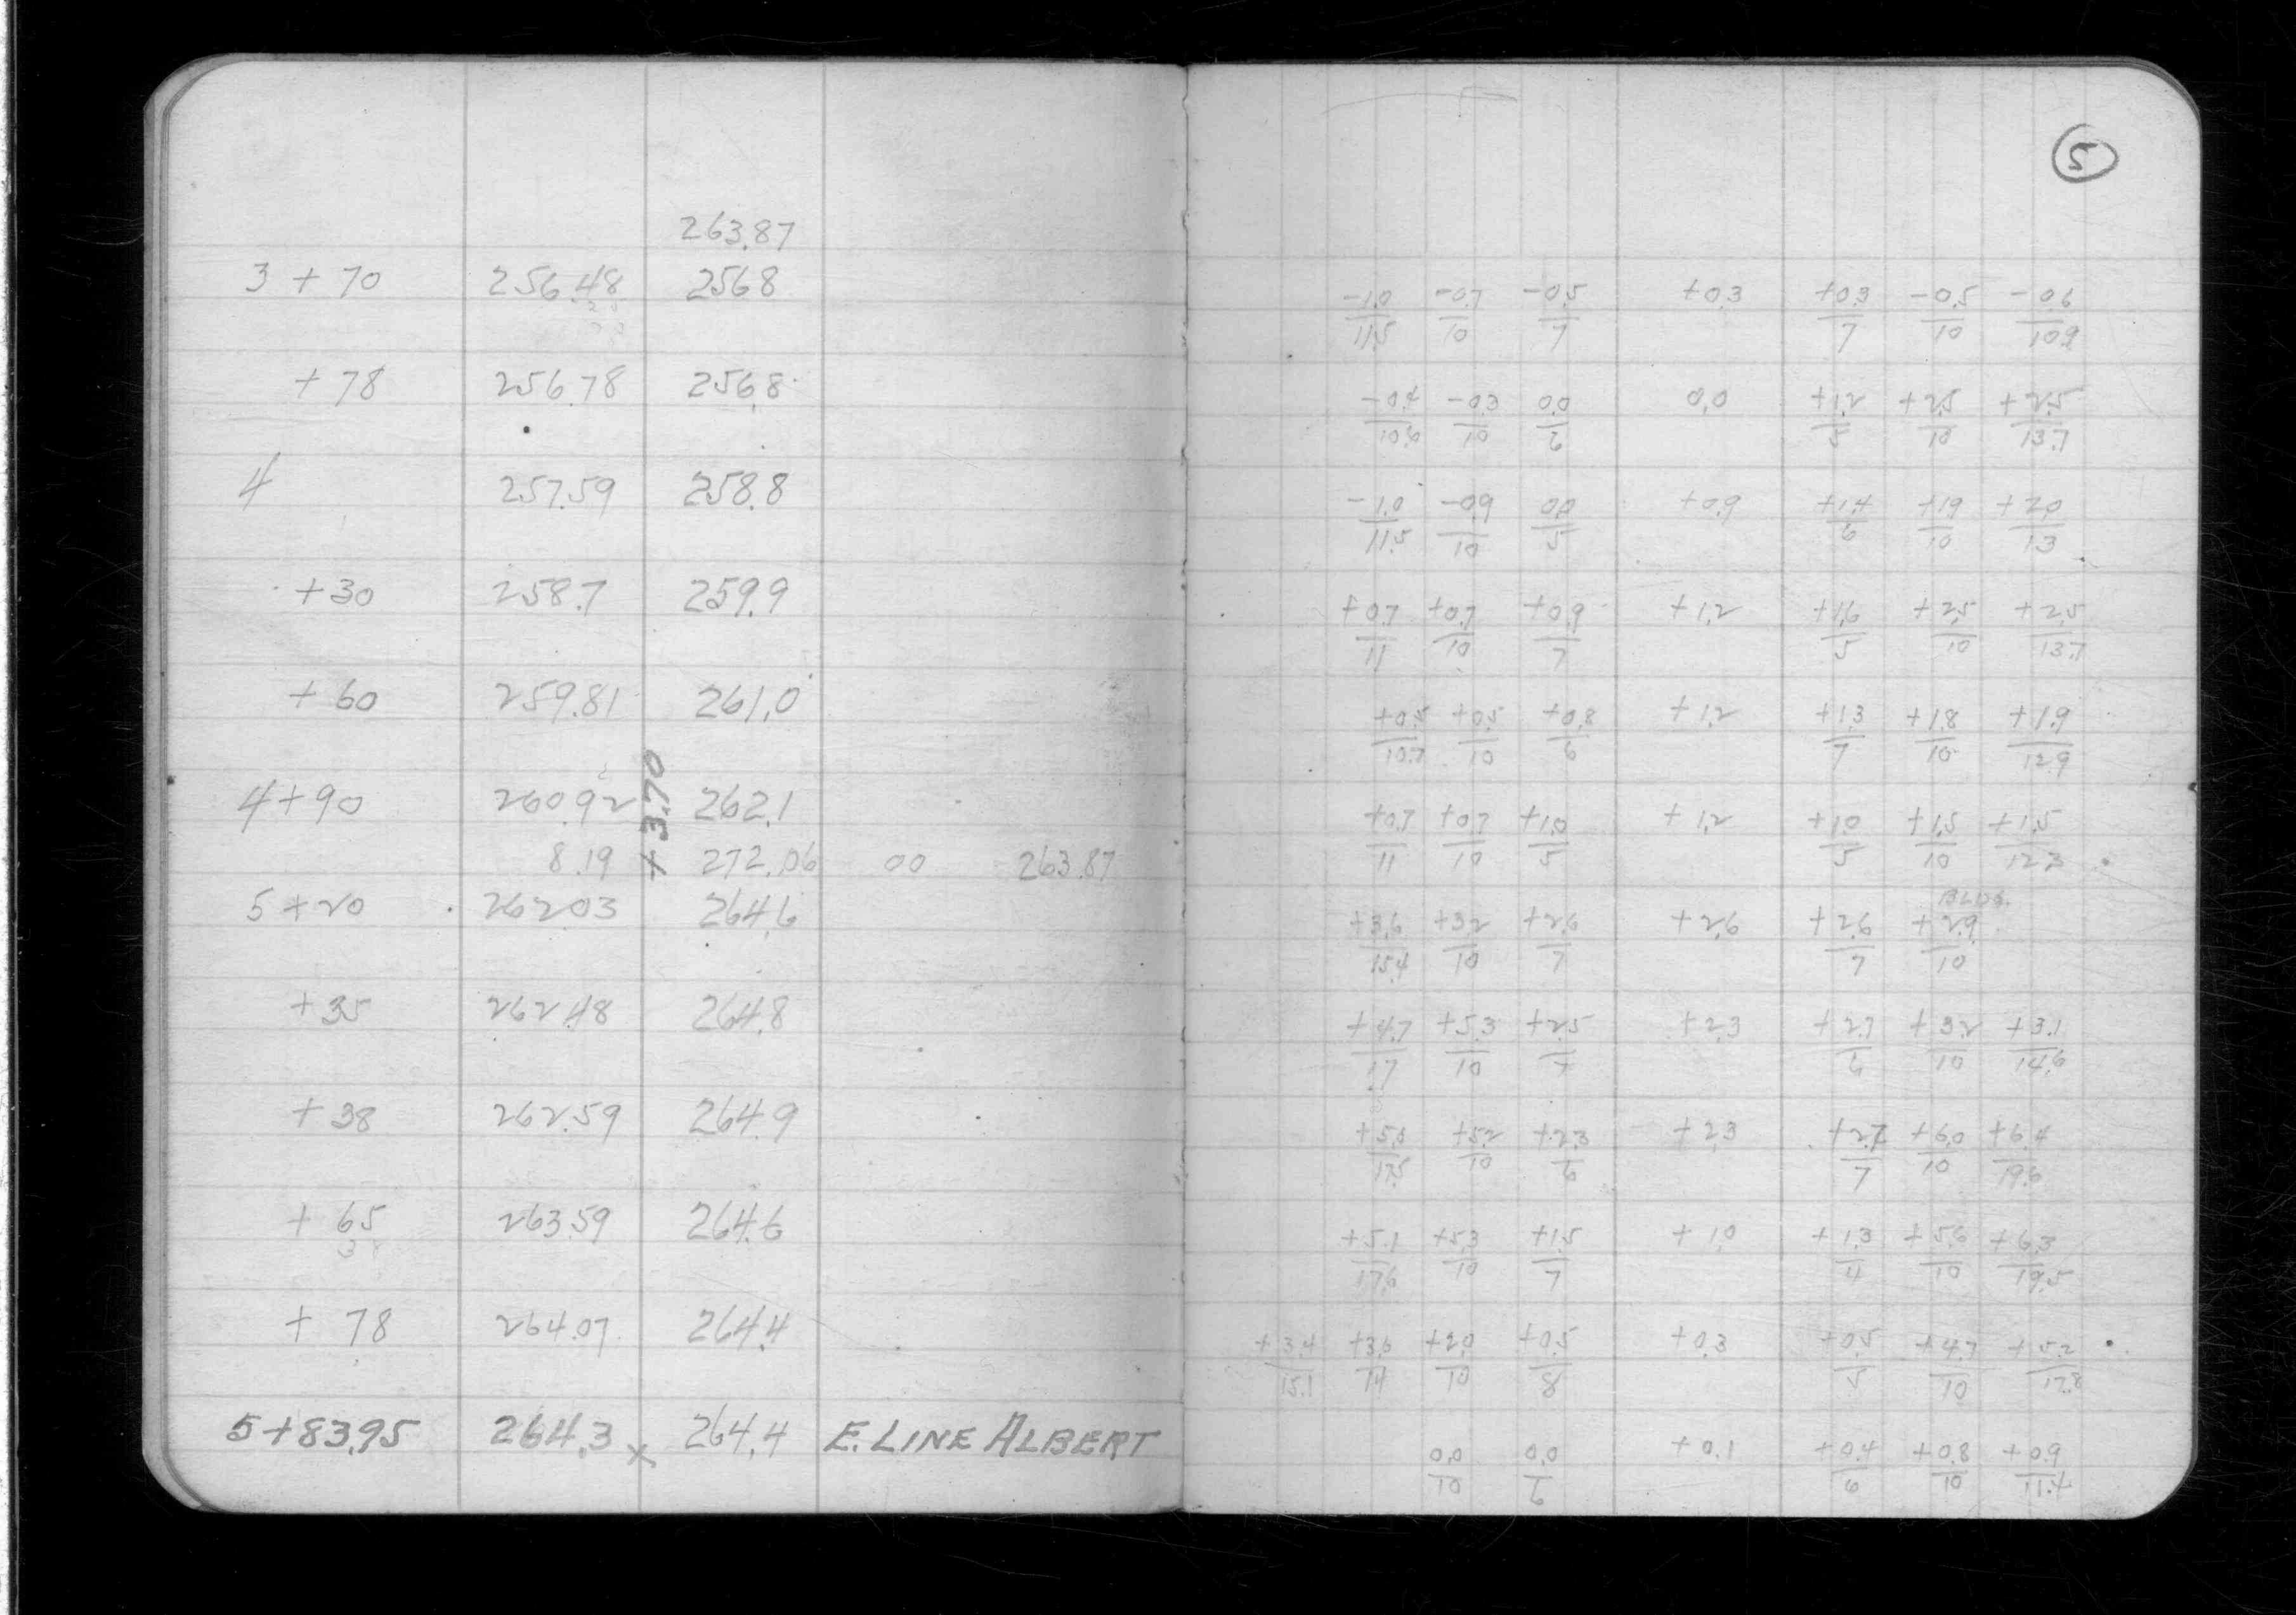 5
263.87
3 + 70 256.48 256.8 -1.0/11.5 -0.7/10 -0.5/7 +0.3 +0.3/7 -0.5/10 -0.6/10.9
+ 78 256.78 256.8 -0.4/10.6 -0.3/10 0.0/6 0.0 +1.2/5 +2.5/10 +2.5/13.7
4 257.59 258.8 -1.0/11.5 -0.9/10 0.0/5 +0.9 +1.4/6 +1.9/10 +2.0/13
+30 258.7 259.9 +0.7/11 +0.7/10 +0.9/7 +1.2 +1.6/5 +2.5/10 +2.5/13.7
+ 60 259.81 261.0 +0.5/10.7 +0.5/10 +0.8/6 +1.2 +1.3/7 +1.8/10 +1.9/12.9
4+90 260.92 262.1 +0.7/11 +0.7/10 +1.0/5 +1.2 +1.0/5 +1.5/10 +1.5/12.3
+3.70
8.19 272.06 00 263.87
BLDG.
5+20 262.03 264.6 +3.6/15.4 +3.2/10 +2.6/7 +2.6 +2.6/7 +2.9/10
+35 262.48 264.8 +4.7/17 +5.3/10 +2.5/7 +2.3 +2.7/6 +3.2/10 +3.1/14.6
+ 38 262.59 264.9 +5.0/17.5 +5.2/10 +2.3/6 +2.3 +2.7/7 +6.0/10 +6.4/19.6
+ 65 263.59 264.6 +5.1/17.6 +5.3/10 +1.5/7 +1.0 +1.3/4 +5.6/10 +6.3/19.5
+ 78 264.07 264.4 +3.4/15.1 +3.6/14 +2.0/10 +0.5/8 +0.3 +0.5/5 +4.7/10 +5.2/17.8
5+83.95 264.3 x 264.4 E. LINE ALBERT 0.0/10 0.0/6 +0.1 +0.4/6 +0.8/10 +0.9/11.4